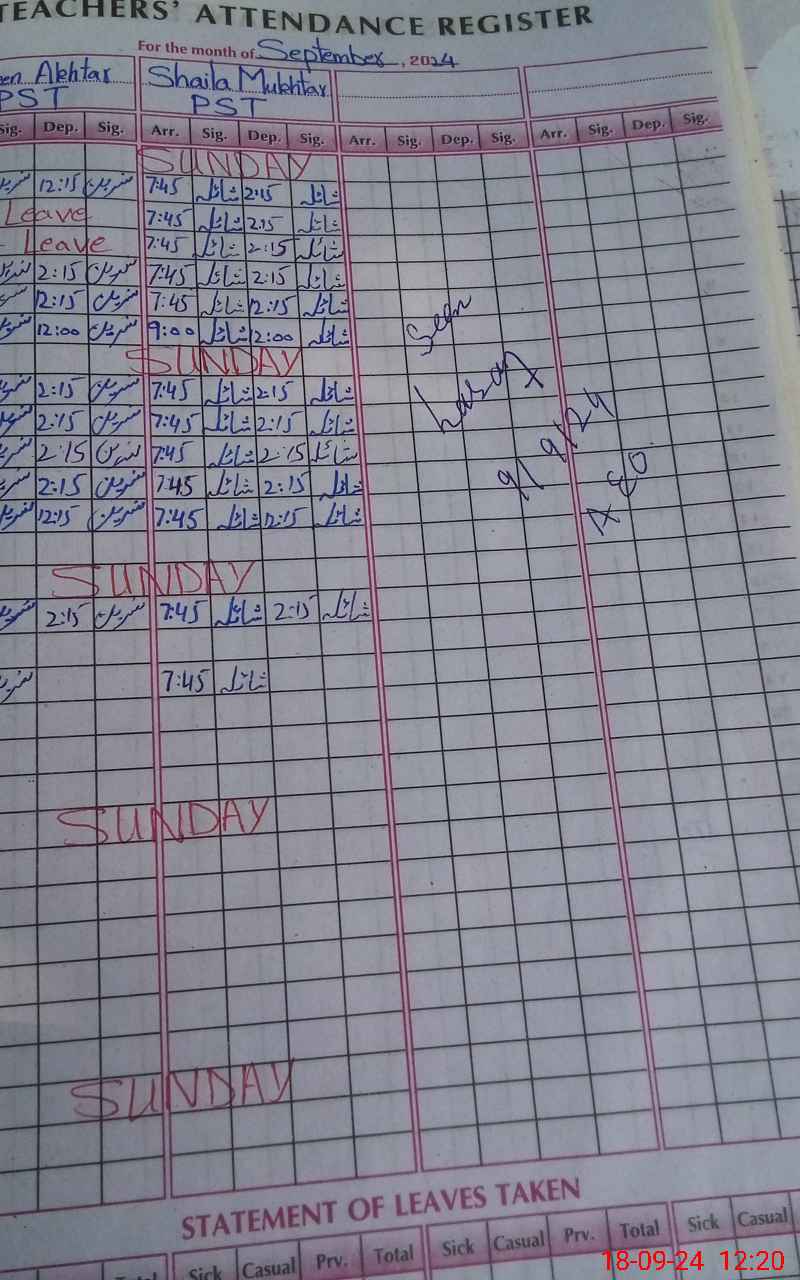 TEACHERS' ATTENDANCE REGISTER
For the month of September, 2024
en Akhtar Shaila Mukhtar
PST PST
Sig. Dep. Sig. Arr. Sig. Dep. Sig. Arr. Sig. Dep. Sig. Arr. Sig. Dep. Sig.
SUNDAY
12:15 نسرین 7:45 شائلہ 2:15 شائلہ
Leave 7:45 شائلہ 2:15 شائلہ
Leave 7:45 شائلہ 2:15 شائلہ
2:15 نسرین 7:45 شائلہ 2:15 شائلہ
12:15 نسرین 7:45 شائلہ 12:15 شائلہ
12:00 نسرین 9:00 شائلہ 12:00 شائلہ
Seen
SUNDAY
2:15 نسرین 7:45 شائلہ 2:15 شائلہ
2:15 نسرین 7:45 شائلہ 2:15 شائلہ
2:15 نسرین 7:45 شائلہ 2:15 شائلہ
9/9/24
2:15 نسرین 7:45 شائلہ 2:15 شائلہ
12:15 نسرین 7:45 شائلہ 12:15 شائلہ
AEO
SUNDAY
2:15 نسرین 7:45 شائلہ 2:15 شائلہ
7:45 شائلہ
SUNDAY
SUNDAY
STATEMENT OF LEAVES TAKEN
Total Sick Casual Prv. Total Sick Casual Prv. Total Sick Casual
18-09-24 12:20